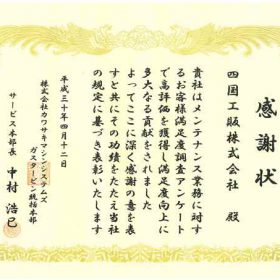 感謝状
四国工販株式会社 殿
貴社はメンテナンス業務に対す
るお客様満足度調査アンケート
で高評価を獲得し満足度向上に
多大なる貢献をされました
よってここに深く感謝の意を表
すと共にその功績をたたえ当社
の規定に基づき表彰いたします
平成三十年四月十二日
株式会社カワサキマシンシステムズ
ガスタービン統括本部
サービス本部長 中村 浩巳